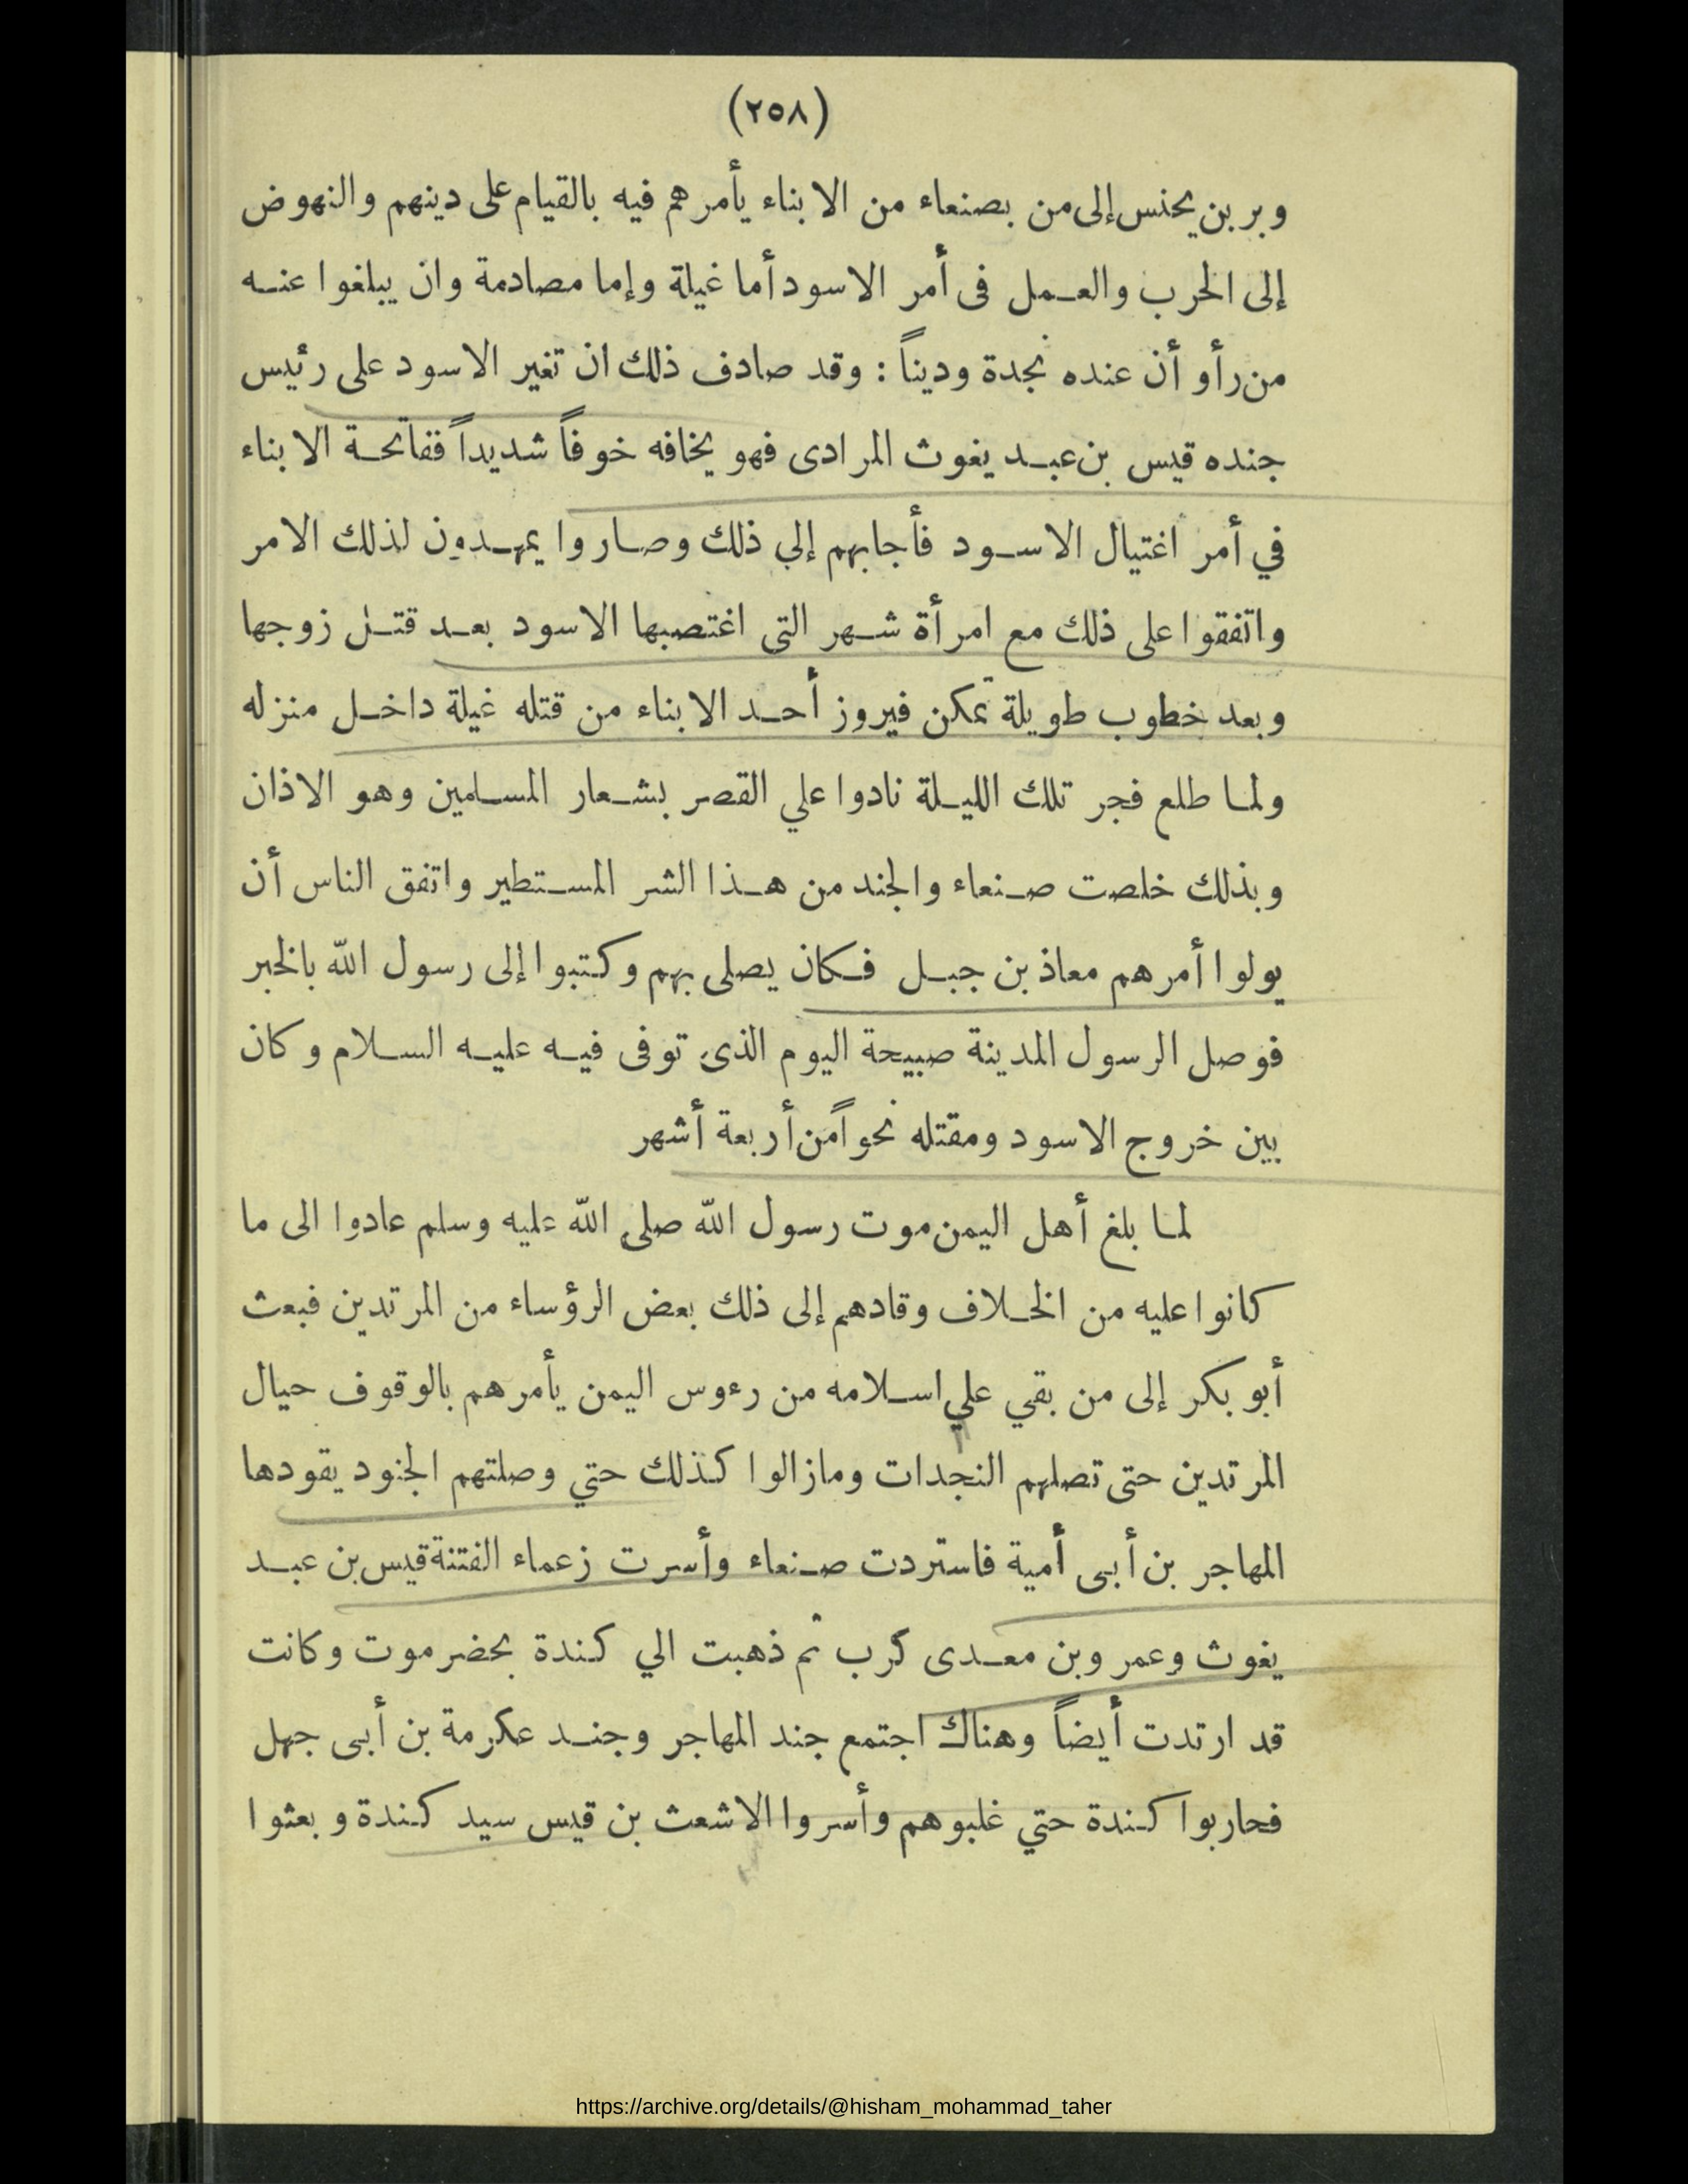 (٢٥٨)
وبر بن يحنس إلى من بصنعاء من الابناء يأمرهم فيه بالقيام على دينهم والنهوض
إلى الحرب والعمل فى أمر الاسود أما غيلة وإما مصادمة وان يبلغوا عنه
من رأو أن عنده نجدة وديناً : وقد صادف ذلك ان تغير الاسود على رئيس
جنده قيس بن عبد يغوث المرادى فهو يخافه خوفاً شديداً ففاتحة الابناء
في أمر اغتيال الاسود فأجابهم إلي ذلك وصاروا يمهدون لذلك الامر
واتفقوا على ذلك مع امرأة شهر التى اغتصبها الاسود بعد قتل زوجها
وبعد خطوب طويلة تمكن فيروز أحد الابناء من قتله غيلة داخل منزله
ولما طلع فجر تلك الليلة نادوا علي القصر بشعار المسلمين وهو الاذان
وبذلك خلصت صنعاء والجند من هذا الشر المستطير واتفق الناس أن
يولوا أمرهم معاذ بن جبل فكان يصلى بهم وكتبوا إلى رسول الله بالخبر
فوصل الرسول المدينة صبيحة اليوم الذى توفى فيه عليه السلام وكان
بين خروج الاسود ومقتله نحواً من أربعة أشهر
لما بلغ أهل اليمن موت رسول الله صلى الله عليه وسلم عادوا الى ما
كانوا عليه من الخلاف وقادهم إلى ذلك بعض الرؤساء من المرتدين فبعث
أبو بكر إلى من بقي علي اسلامه من رءوس اليمن يأمرهم بالوقوف حيال
المرتدين حتى تصلهم النجدات ومازالوا كذلك حتي وصلتهم الجنود يقودها
المهاجر بن أبى أمية فاستردت صنعاء وأسرت زعماء الفتنة قيس بن عبد
يغوث وعمرو بن معدى كرب ثم ذهبت الي كندة بحضرموت وكانت
قد ارتدت أيضاً وهناك اجتمع جند المهاجر وجند عكرمة بن أبى جهل
فحاربوا كندة حتي غلبوهم وأسروا الاشعث بن قيس سيد كندة وبعثوا
https://archive.org/details/@hisham_mohammad_taher